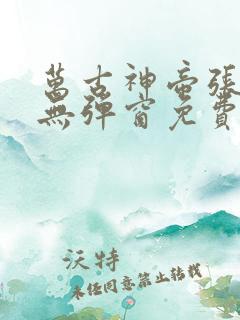 萬古神帝張
無彈窗免費
沃特
未经同意禁止转载